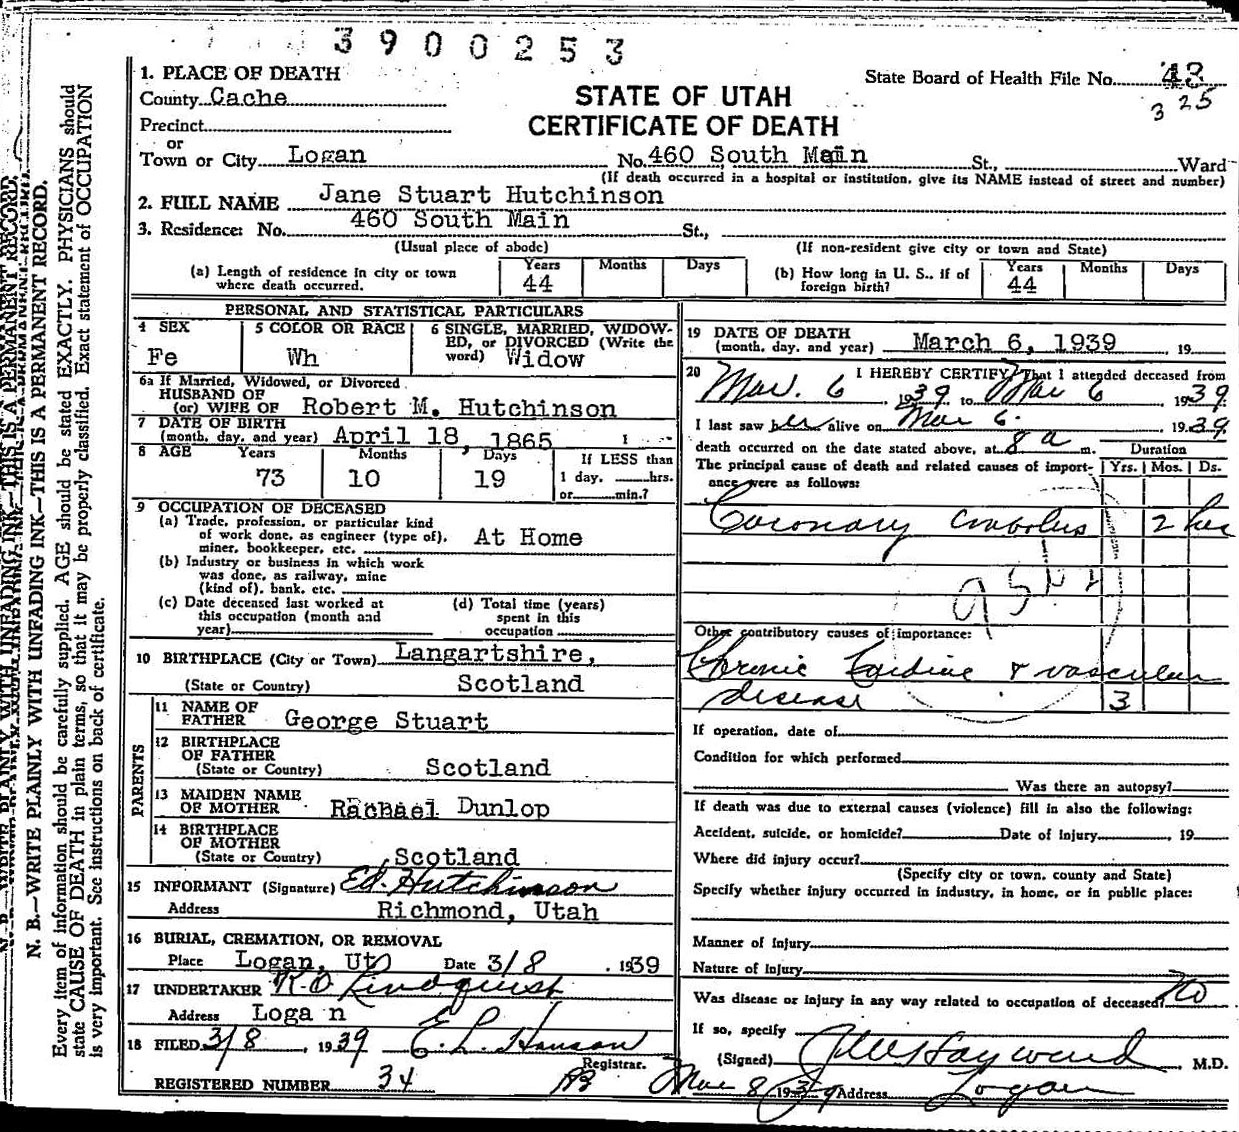 3900253
1. PLACE OF DEATH
State Board of Health File No. 43
325
County Cache
STATE OF UTAH
Precinct
CERTIFICATE OF DEATH
or
Town or City Logan No. 460 South Main St., Ward
(If death occurred in a hospital or institution, give its NAME instead of street and number)
2. FULL NAME Jane Stuart Hutchinson
3. Residence: No. 460 South Main St.,
(Usual place of abode) (If non-resident give city or town and State)
(a) Length of residence in city or town where death occurred. Years 44 Months Days
(b) How long in U. S., if of foreign birth? Years 44 Months Days
PERSONAL AND STATISTICAL PARTICULARS
4 SEX Fe
5 COLOR OR RACE Wh
6 SINGLE, MARRIED, WIDOW-
ED, or DIVORCED (Write the
word) Widow
6a If Married, Widowed, or Divorced
HUSBAND OF
(or) WIFE OF Robert M. Hutchinson
7 DATE OF BIRTH
(month, day, and year) April 18, 1865
8 AGE Years Months Days If LESS than
73 10 19 1 day, hrs.
or min.?
9 OCCUPATION OF DECEASED
(a) Trade, profession, or particular kind
of work done, as engineer (type of), At Home
miner, bookkeeper, etc.
(b) Industry or business in which work
was done, as railway, mine
(kind of), bank, etc.
(c) Date deceased last worked at
this occupation (month and
year)
(d) Total time (years)
spent in this
occupation
10 BIRTHPLACE (City or Town) Langartshire,
(State or Country) Scotland
PARENTS
11 NAME OF
FATHER George Stuart
12 BIRTHPLACE
OF FATHER
(State or Country) Scotland
13 MAIDEN NAME
OF MOTHER Rachael Dunlop
14 BIRTHPLACE
OF MOTHER
(State or Country) Scotland
15 INFORMANT (Signature) Ed. Hutchinson
Address Richmond, Utah
16 BURIAL, CREMATION, OR REMOVAL
Place Logan, Ut Date 3/8, 1939
17 UNDERTAKER K.O. Lindquist
Address Loga n
18 FILED 3/8, 1939 E. L. Hanson
Registrar.
REGISTERED NUMBER 34
19 DATE OF DEATH
(month, day, and year) March 6, 1939 , 19
20 I HEREBY CERTIFY, That I attended deceased from
Mar. 6, 1939, to Mar 6, 1939.
I last saw her alive on Mar 6, 1939,
death occurred on the date stated above, at 8 a m. Duration
The principal cause of death and related causes of import- Yrs. Mos. Ds.
ance were as follows:
Coronary embolus 2 hrs
Other contributory causes of importance:
Chronic Cardiac & vascular
disease 3
If operation, date of
Condition for which performed
Was there an autopsy?
If death was due to external causes (violence) fill in also the following:
Accident, suicide, or homicide? Date of Injury , 19
Where did injury occur?
(Specify city or town, county and State)
Specify whether injury occurred in industry, in home, or in public place:
Manner of Injury
Nature of Injury
Was disease or injury in any way related to occupation of deceased? no
If so, specify
(Signed) Hayward, M.D.
Mar 8, 1939 Address Logan
N. B.—WRITE PLAINLY WITH UNFADING INK—THIS IS A PERMANENT RECORD.
Every item of information should be carefully supplied. AGE should be stated EXACTLY. PHYSICIANS should
state CAUSE OF DEATH in plain terms, so that it may be properly classified. Exact statement of OCCUPATION
is very important. See instructions on back of certificate.